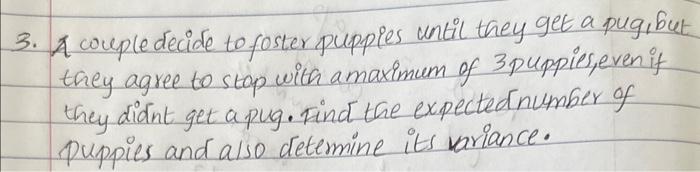 3. A couple decide to foster puppies until they get a pug, but
they agree to stop with a maximum of 3 puppies, even if
they didnt get a pug. Find the expected number of
puppies and also detemine its variance.